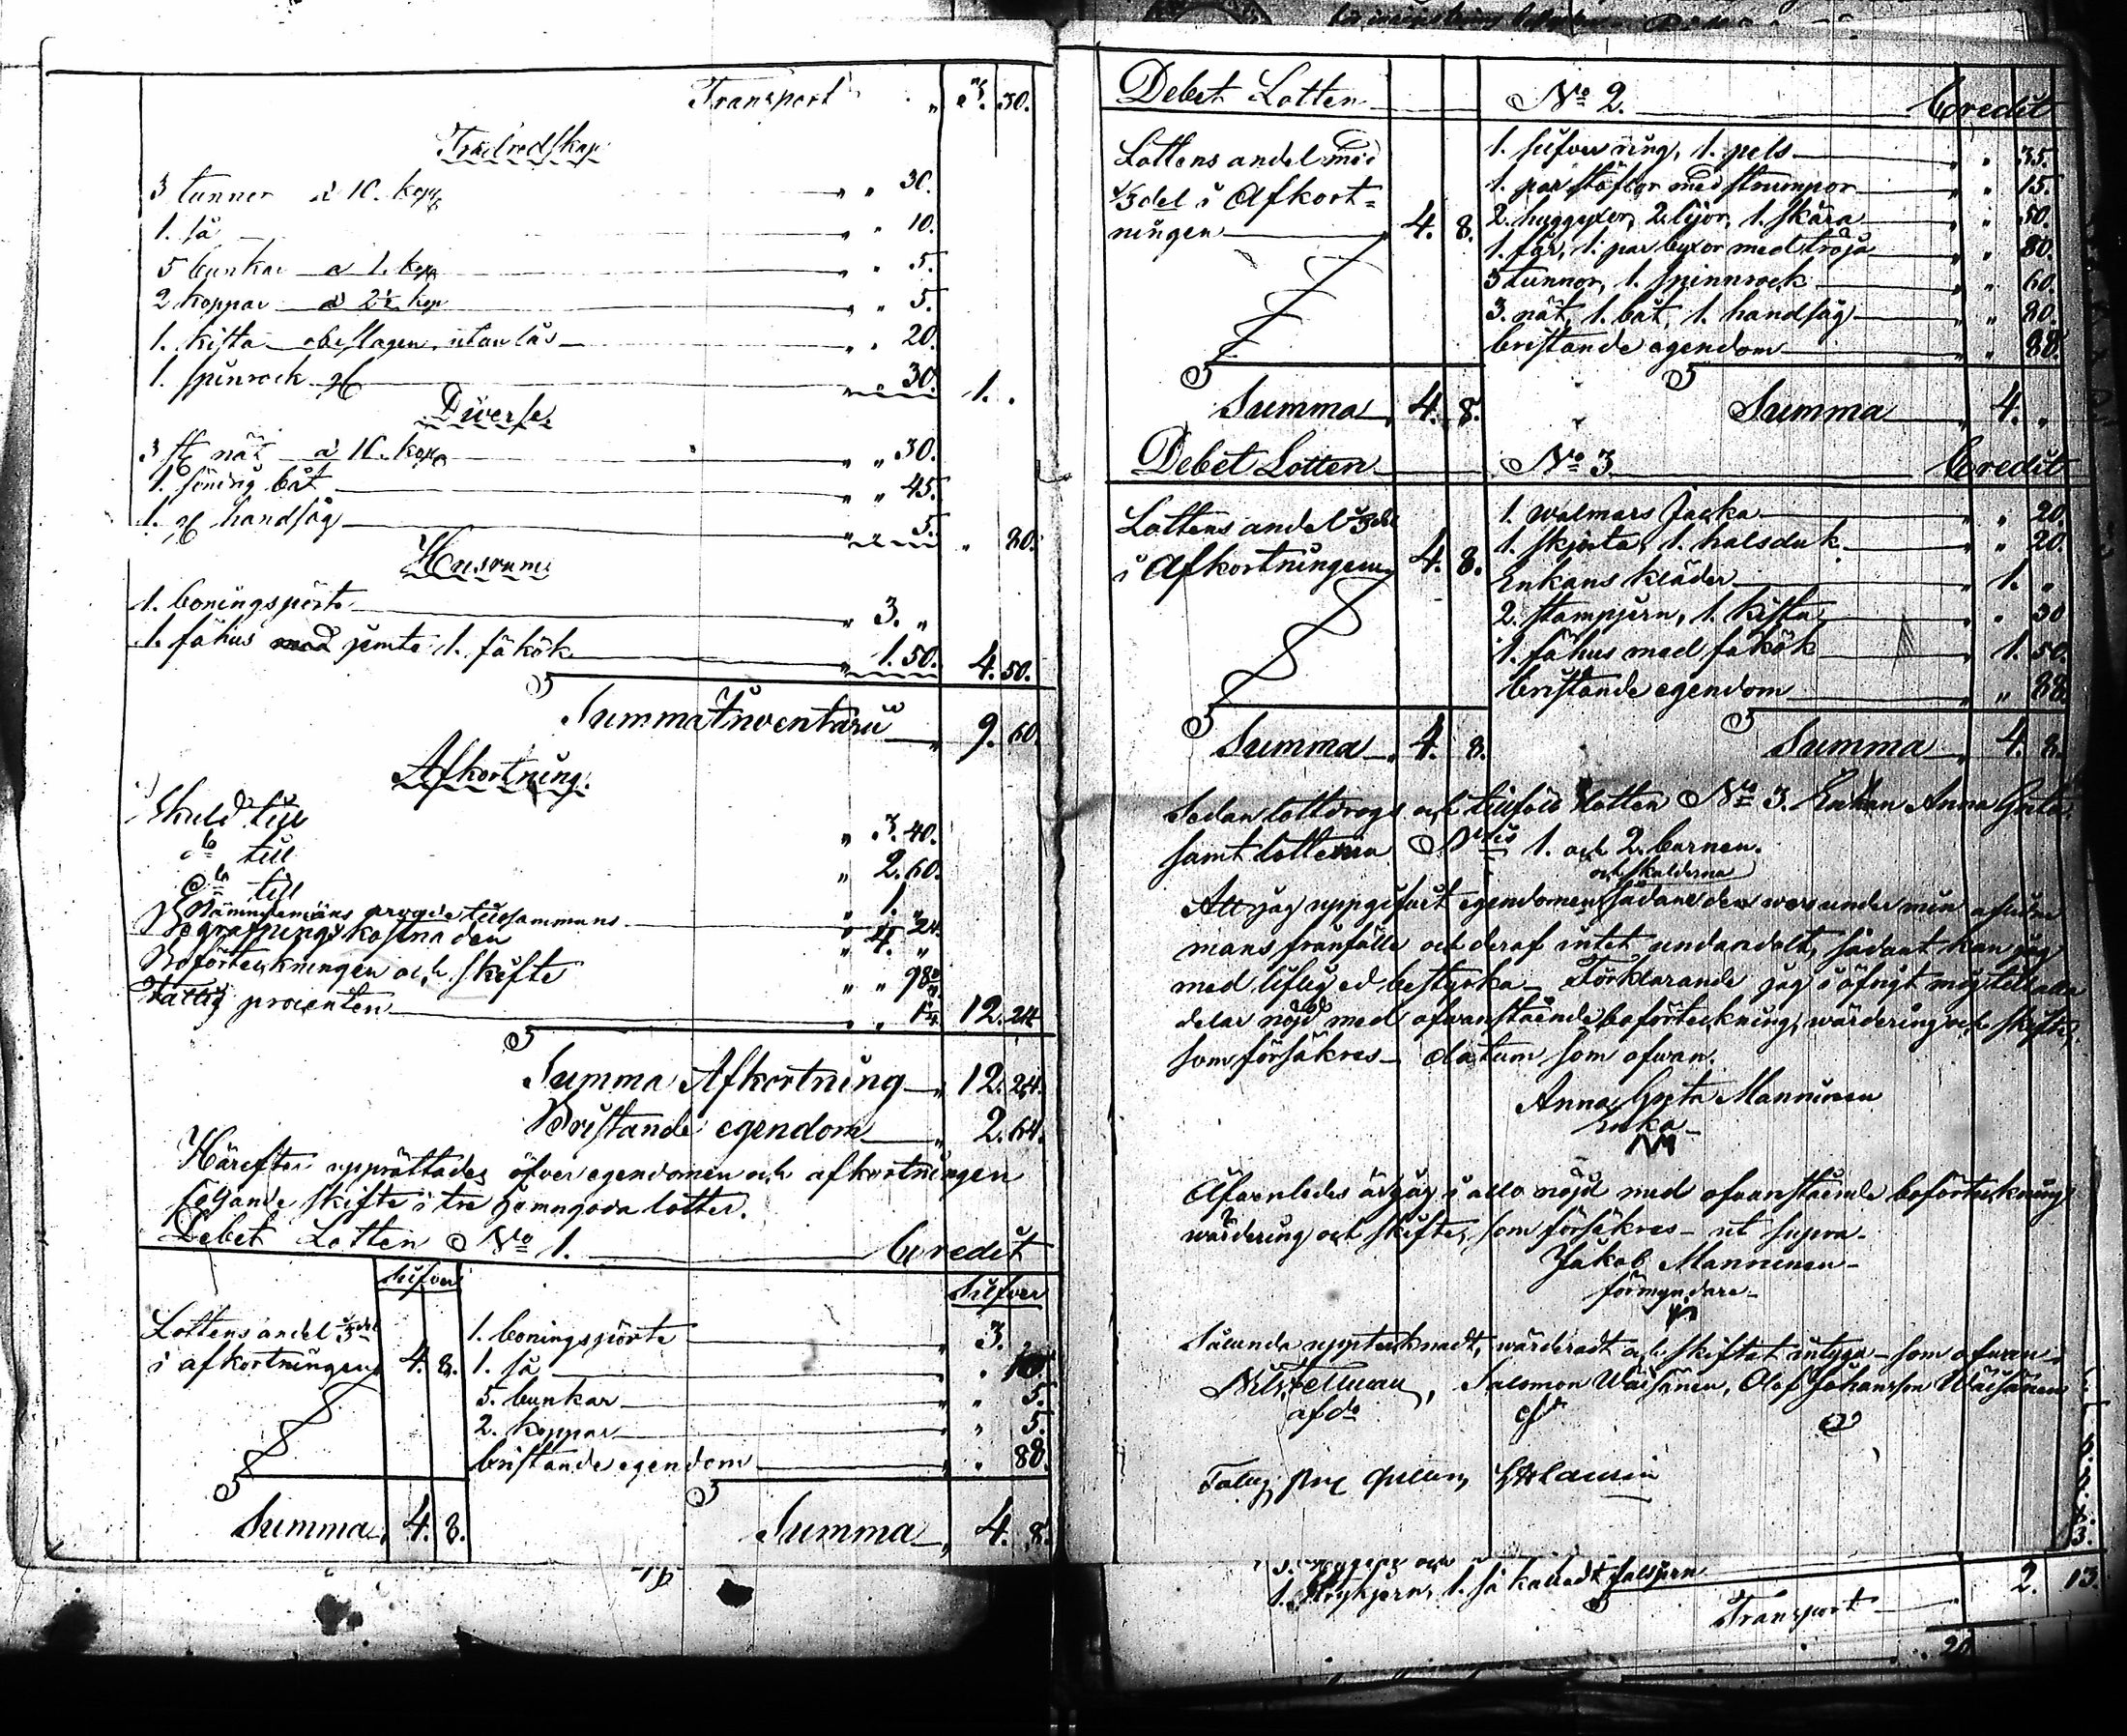 Transport " 3. 30.
Trädredskap
3 tunnor à 10. kop " " 30.
1. så " " 10.
5 bunkar a 1. kop " " 5.
2 koppar à 2½ kop " " 5.
1. kista obeslagen utan lås " " 20.
1. spinrock " " 30. 1. "
Diverse
3 st nät à 10. kop " " 30.
1. båt " " 45.
1. handsåg " " 5. " 80.
Husrum
1. boningspörte " 3. "
1. fähus med jemte 1. fäkök " 1. 50. 4. 50.
Summa Inventarii " 9. 60.
Afkortning.
Skuld till " 3. 40.
do till " 2. 60.
do till " 1. "
Nämndemäns arvode tillsammans " " 24.
Begrafningskostnaden " 4. "
Boförteckningen och skifte " " 98
Fattig procenten " " 12. 24.
Summa Afkortning " 12. 24.
Bristande egendom " 2. 64.
Härefter upprättades öfver egendomen och afkortningen
följande skifte i tre jemngoda lotter.
Debet Lotten No 1. Credit
Silfver Silfver
Lottens andel ⅓del
i afkortningen 4. 8.
1. boningspörte " 3. "
1. så " " 10.
5. bunkar " " 5.
2. koppar " " 5.
bristande egendom " " 88.
Summa 4. 8. Summa " 4. 8.
Debet Lotten No 2. Credit
Lottens andel med
⅓del i Afkort=
ningen 4. 8.
1. silfver ring, 1. pels " " 35.
1. par stöflor med strumpor " " 15.
2. huggyxor, 2 lijor, 1. skära " " 50.
1. får, 1. par byxor med tröja " " 80.
3 tunnor, 1. spinnrock " " 60.
3. nät, 1. båt, 1. handsåg " " 80.
bristande egendom " " 88.
Summa 4. 8. Summa 4. "
Debet Lotten No 3 Credit
Lottens andel ⅓del
i Afkortningen 4. 8.
1. walmars Jacka " " 20.
1. skjorta, 1. halsduk " " 20.
Enkans kläder " 1. "
2. stampjern, 1. kista " " 30
1. fähus med fäkök " 1. 50.
bristande egendom " " 88.
Summa 4. 8. Summa 4. 8.
Sedan lottdrogs och tillföll lotten No 3. Enkan Anna Greta
samt lotterna Nris 1. och 2. barnen.
och skulderna
Att jag uppgifvit egendomen sådane den war under min aflidne
mans frånfälle och deraf intet undandolt, sådant kan jag
med liflig ed bestyrka. Förklarande jag i öfrigt mig till alla
delar nöjd med ofwanstående boförteckning, wärdering och skifte,
som försäkres. datum som ofwan.
Anna Greta Manninen
Enka
Äfvenledes är jag i allo nöjd med ofvanstående boförteckning
wärdering och skifte, som försäkres ut supra
Jakob Manninen
förmyndare
Sålunda upptecknadt, wärderadt och skiftet intyga som ofwan
Nils Fellman, Salomon Wäisänen, Olof Johansson Wäisänen
1. Strykjern, 1. så kalladt
Transport 2. 13.